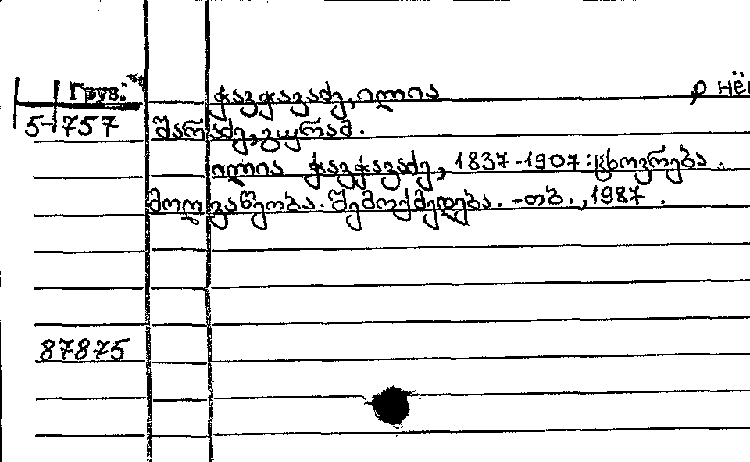 Груз. ჭავჭავაძე, ილია р нём
5-757 შარაძე, გურამ.
ილია ჭავჭავაძე, 1837-1907: ცხოვრება.
მოღვაწეობა. შემოქმედება. -თბ., 1987.
87875